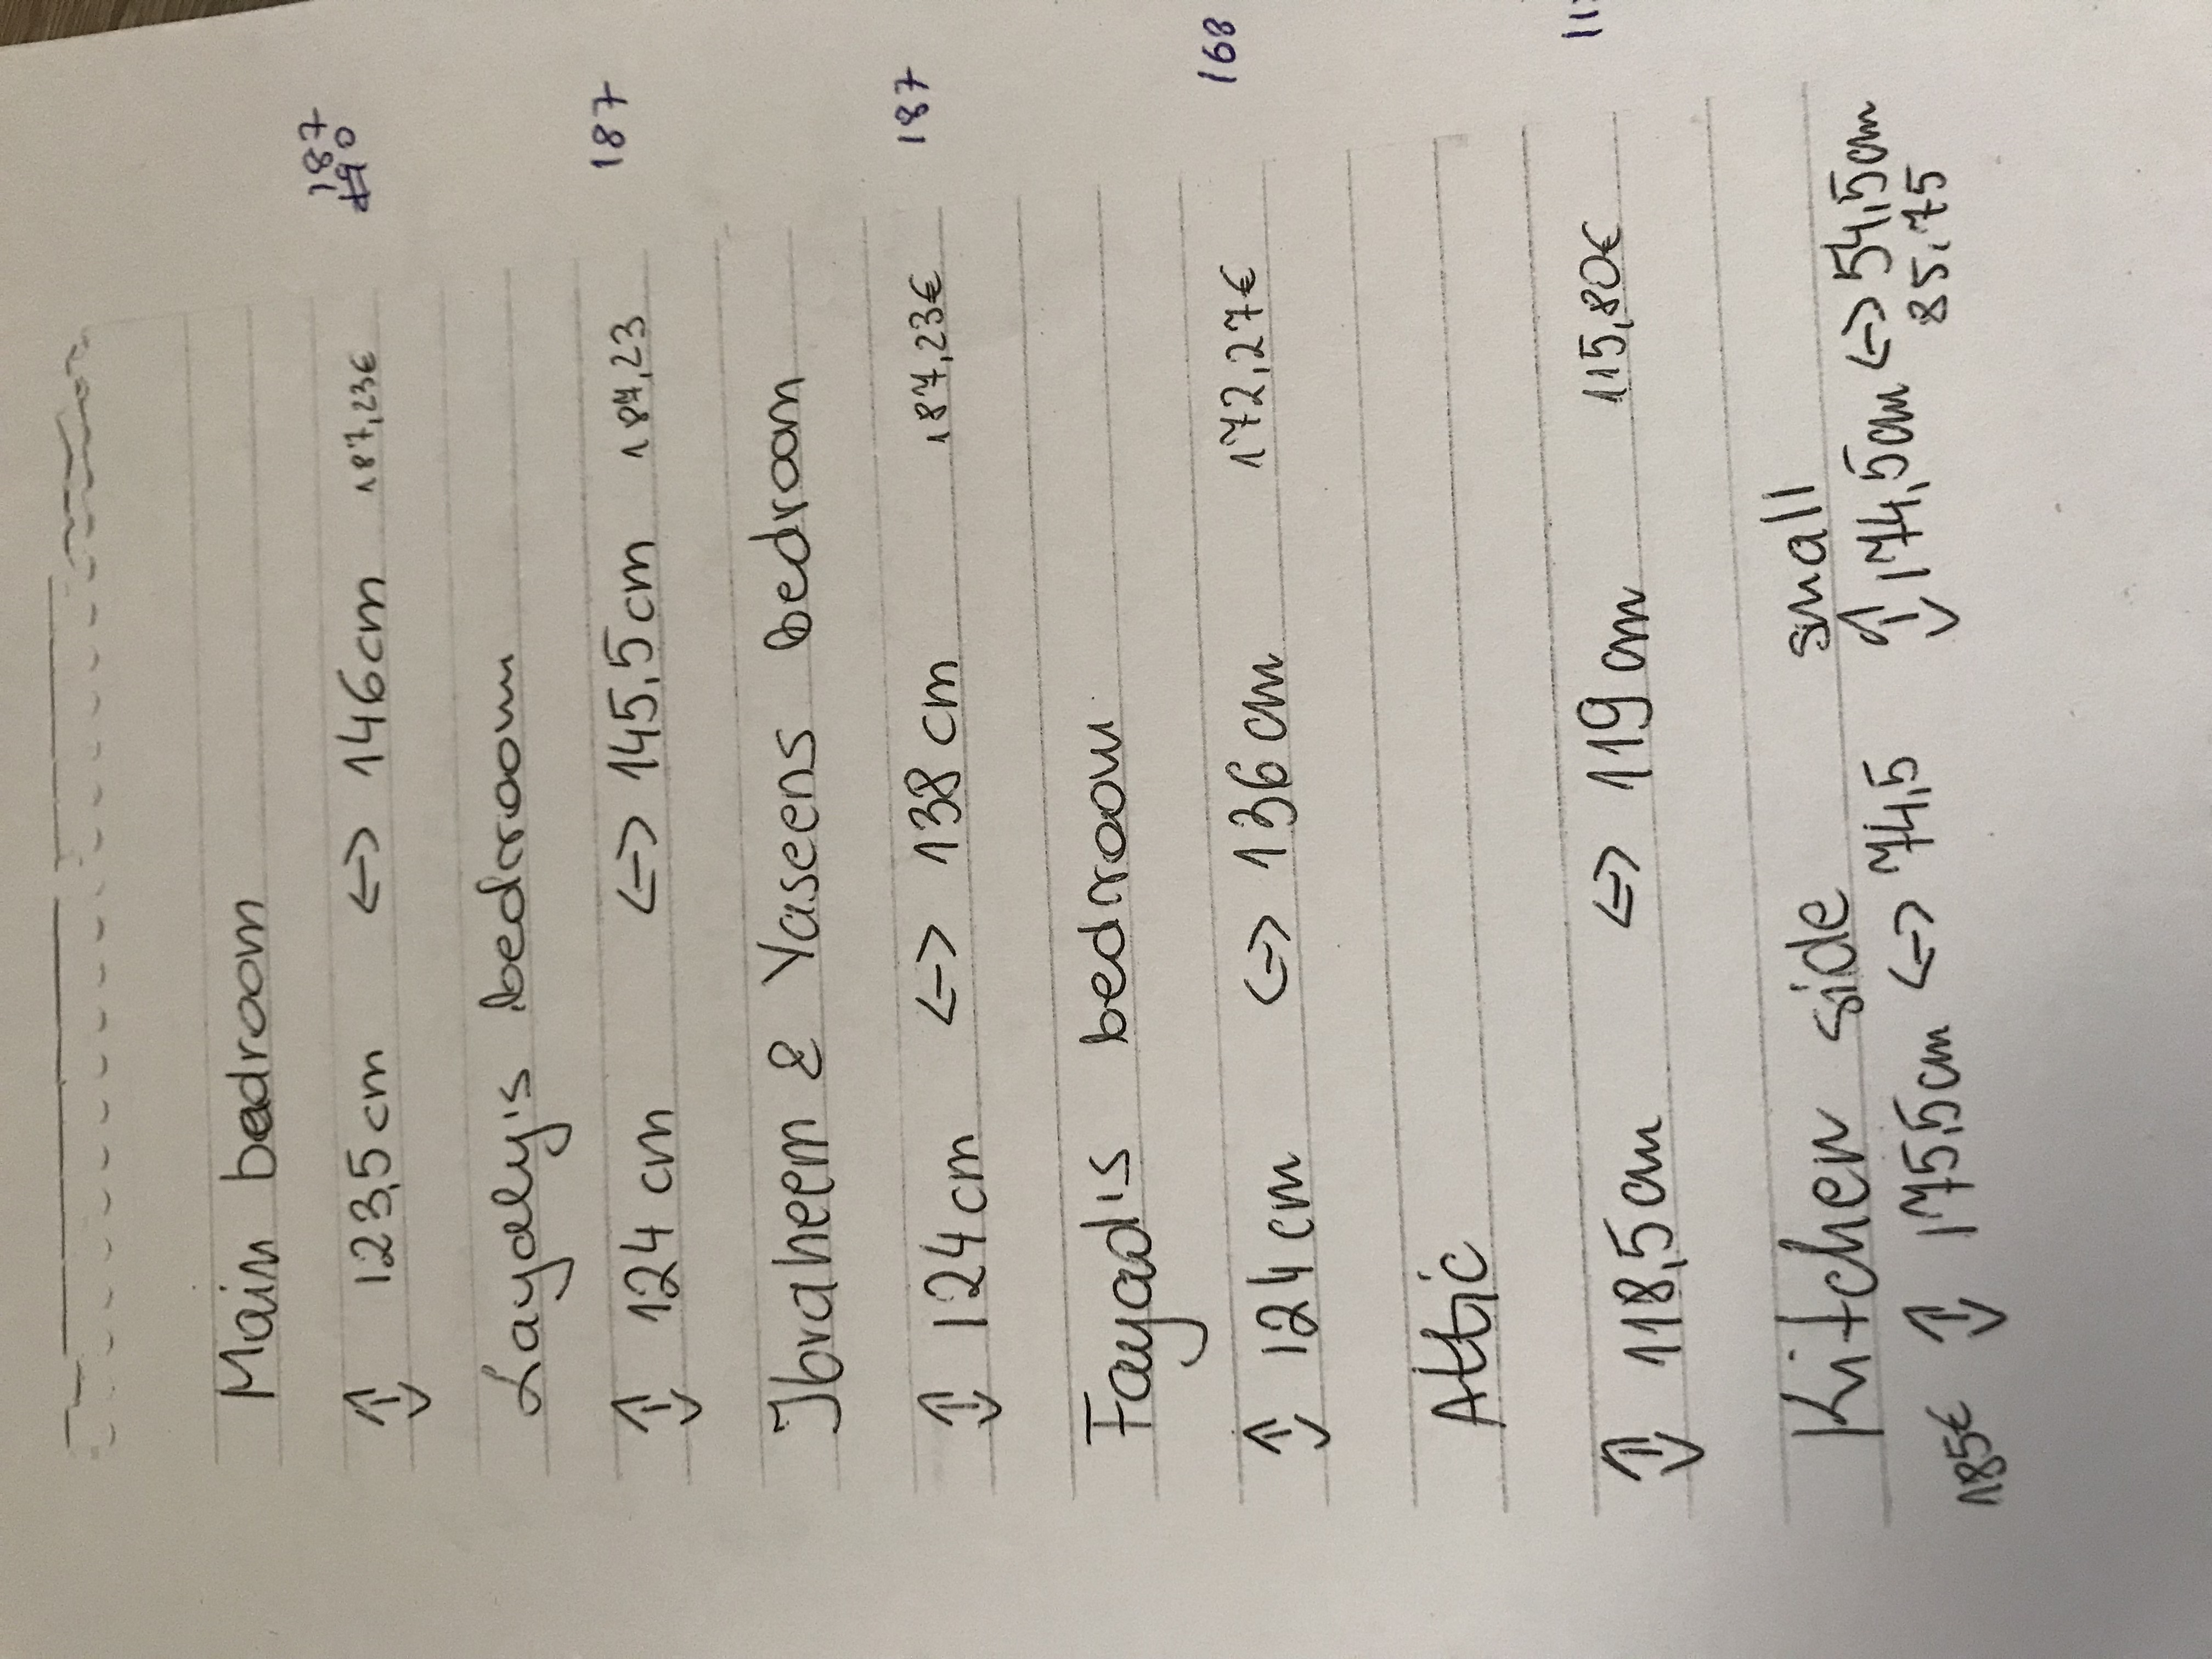 Main bedroom
⇕ 123,5 cm ⇔ 146 cm 187,23€ 187
Layaly's bedroom
⇕ 124 cm ⇔ 145,5 cm 187,23 187
Ibraheem & Yaseens bedroom
⇕ 124 cm ⇔ 138 cm 187,23€ 187
Fayad's bedroom
⇕ 124 cm ⇔ 136 cm 172,27€ 168
Attic
⇕ 118,5 cm ⇔ 119 cm 115,80€
Kitchen side small
185€ ⇕ 175,5 cm ⇔ 74,5 ⇕ 174,5 cm ⇔ 54,5 cm
85,75